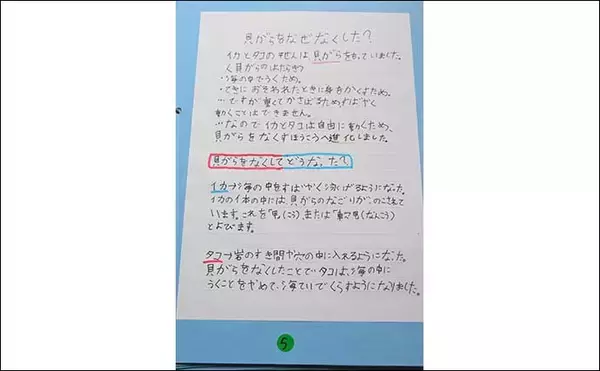 貝がらをなぜなくした?
イカとタコのせんぞは貝がらをもっていました。
く貝がらのはたらき>
・海の中でうくため。
・てきにおそわれたときに身をかくすため。
…ですが重くてかさばるためすばやく
動くことはできません。
…なのでイカとタコは自由に動くため、
貝がらをなくすほうこうへ進化しました。
貝がらをなくしてどうなった?
イカ→海の中をすばやくおよげるようになった。
イカの体の中には、貝がらのなごりが、のこされて
います。これを「甲(こう)、または「軟甲(なんこう)
とよびます。
タコ→岩のすき間や穴の中に入れるようになった。
貝がらをなくしたことでタコは、海の中に
うくことをやめて、海ていでくらすようになりました。
5